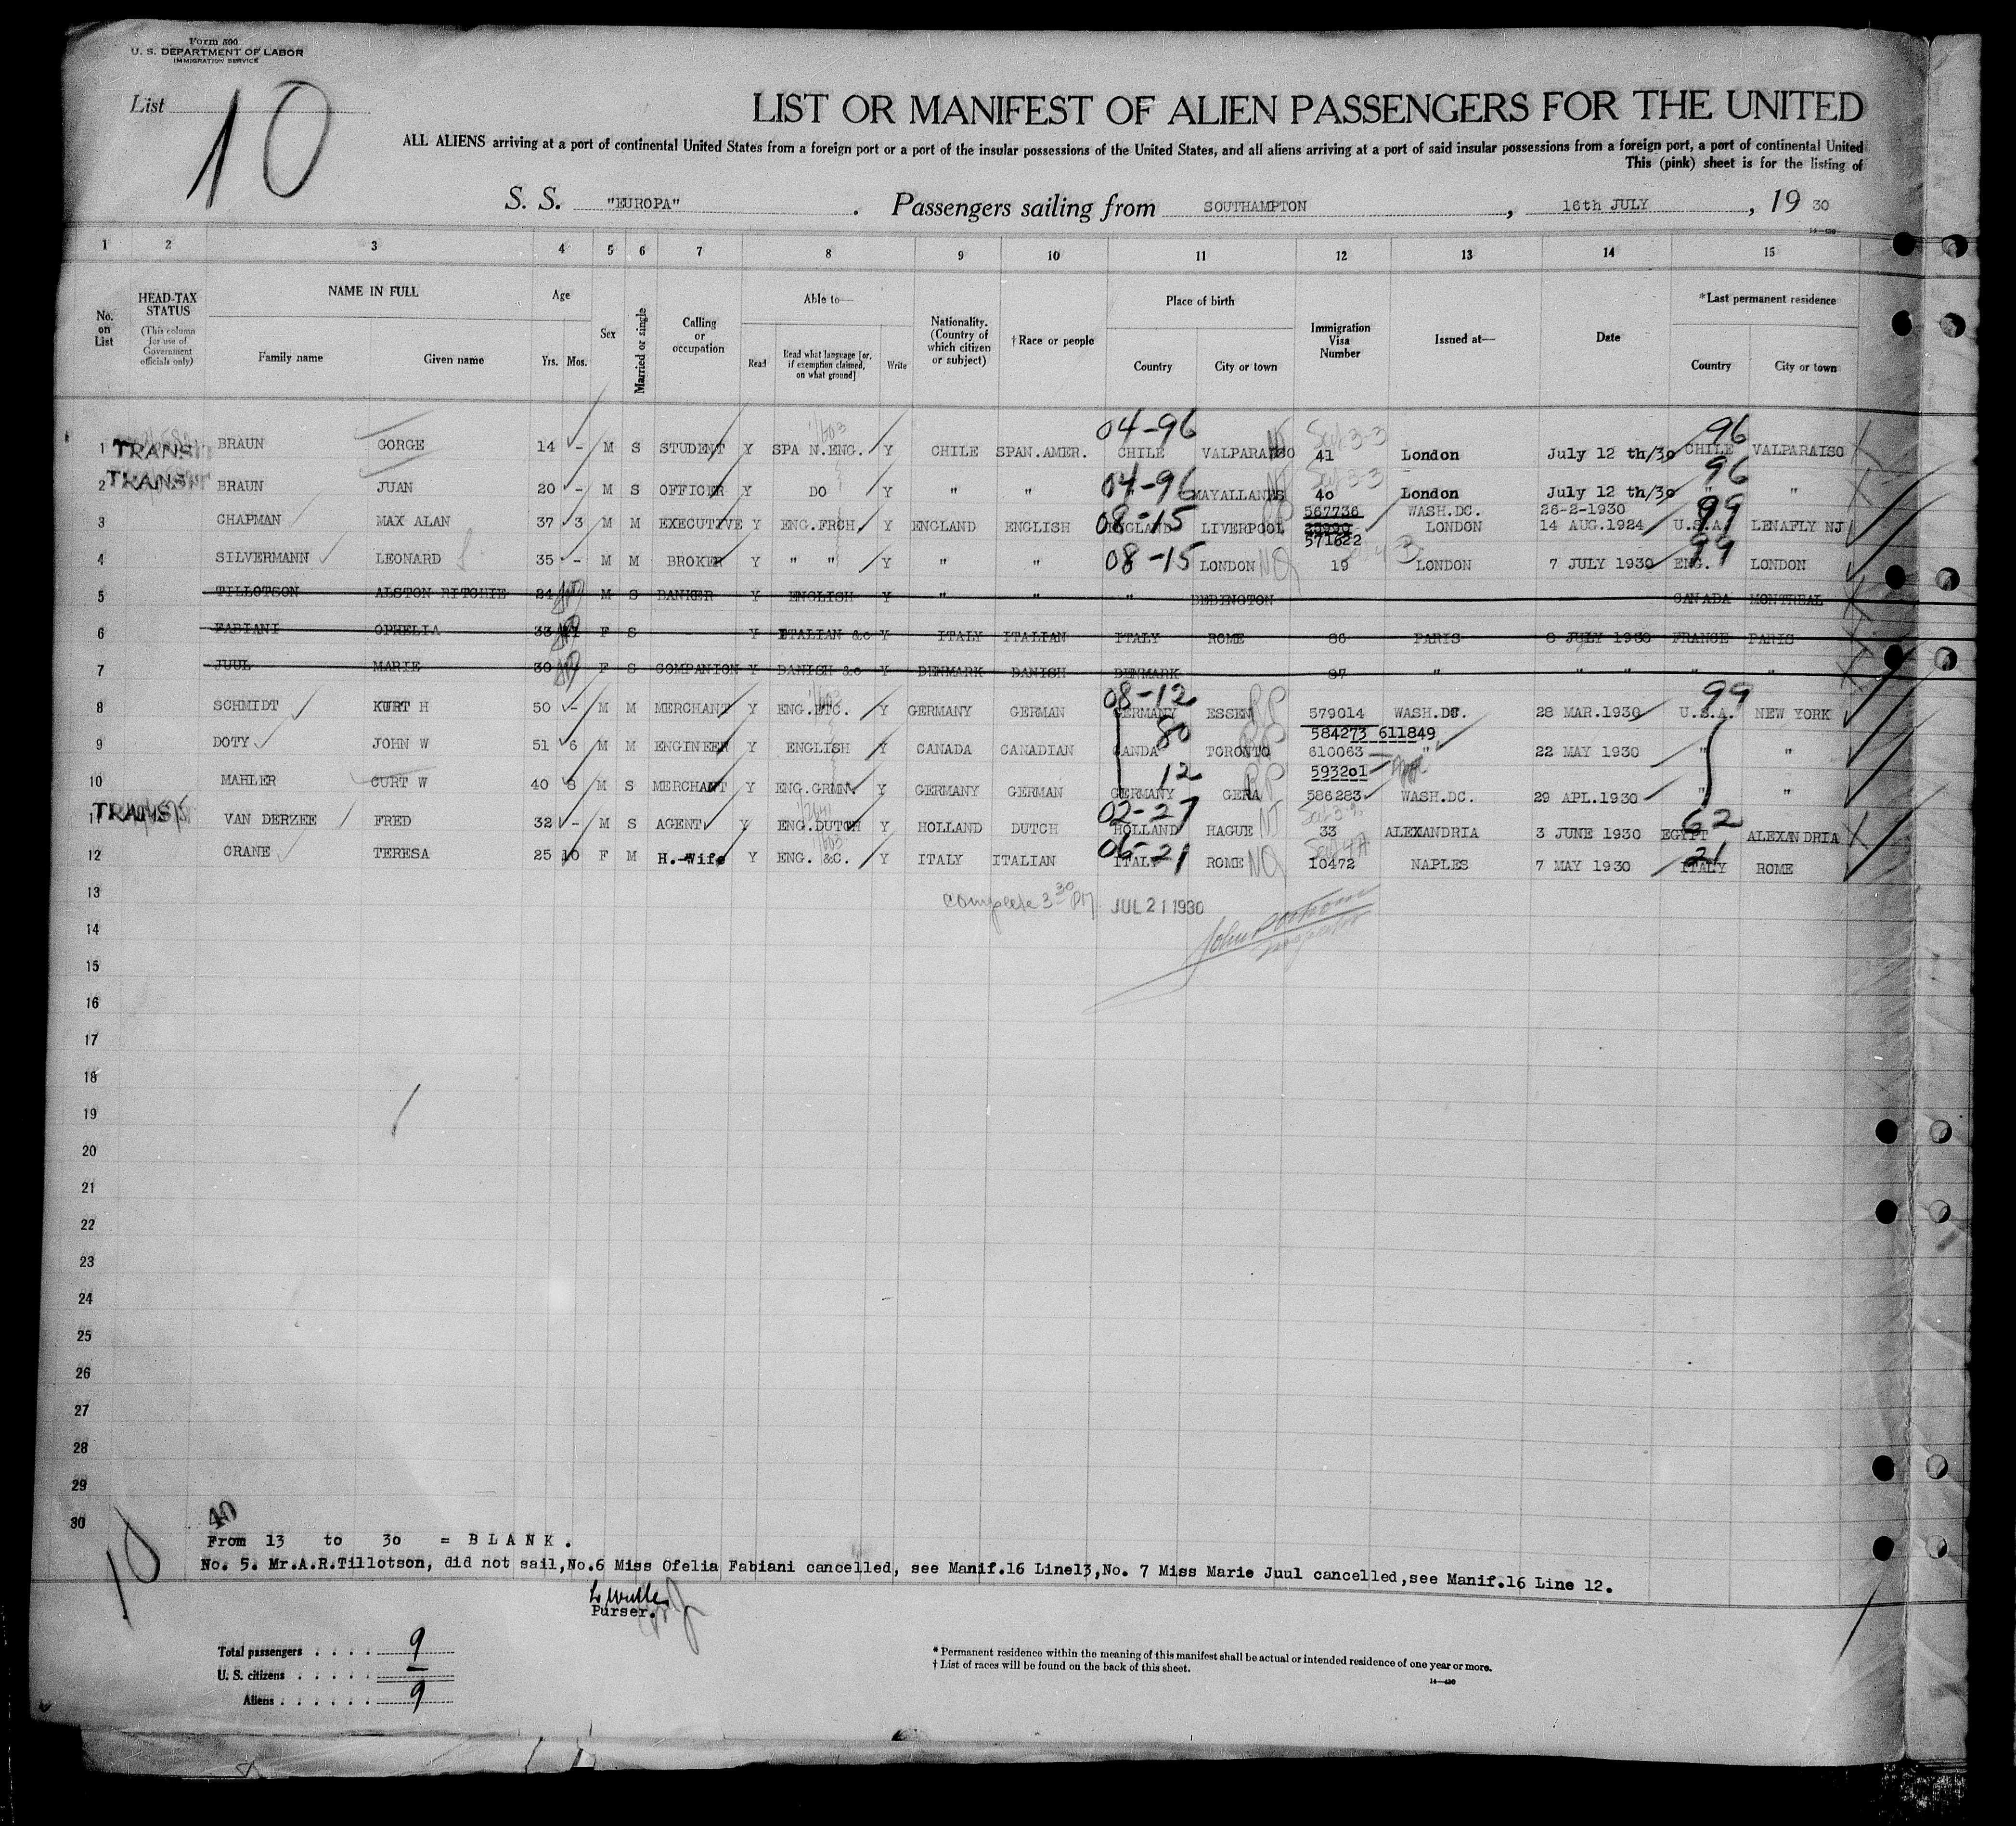 Form 500
U. S. DEPARTMENT OF LABOR
IMMIGRATION SERVICE
List 10
LIST OR MANIFEST OF ALIEN PASSENGERS FOR THE UNITED
ALL ALIENS arriving at a port of continental United States from a foreign port or a port of the insular possessions of the United States, and all aliens arriving at a port of said insular possessions from a foreign port, a port of continental United
This (pink) sheet is for the listing of
S. S. "EUROPA". Passengers sailing from SOUTHAMPTON, 16th JULY, 19 30
1 2 3 4 5 6 7 8 9 10 11 12 13 14 15
No. on List
HEAD-TAX STATUS (This column for use of Government officials only)
NAME IN FULL Family name Given name
Age Yrs. Mos.
Sex
Married or single
Calling or occupation
Able to— Read Read what language [or, if exemption claimed, on what ground] Write
Nationality. (Country of which citizen or subject)
†Race or people
Place of birth Country City or town
Immigration Visa Number
Issued at—
Date
*Last permanent residence Country City or town
04-96 96
1 TRANSIT BRAUN GORGE 14 - M S STUDENT Y SPA N.ENG. Y CHILE SPAN.AMER. CHILE VALPARAISO 41 London July 12 th/30 CHILE VALPARAISO
04-96 96
2 TRANSIT BRAUN JUAN 20 - M S OFFICER Y DO Y " " MAYALLANES 40 London July 12 th/30 " "
567736 WASH.DC. 26-2-1930
3 CHAPMAN MAX ALAN 37 3 M M EXECUTIVE Y ENG.FRCH. Y ENGLAND ENGLISH 08-15 ENGLAND LIVERPOOL 23990 LONDON 14 AUG.1924 U.S.A. 99 LENAFLY NJ
571622
4 SILVERMANN LEONARD 35 - M M BROKER Y " " Y " " 08-15 LONDON NQ 19 LONDON 7 JULY 1930 ENG. 99 LONDON
5 TILLOTSON ALSTON RITCHIE 24 M S BANKER Y ENGLISH Y " " " BEBINGTON CANADA MONTREAL
6 FABIANI OPHELIA 33 F S - Y ITALIAN &c Y ITALY ITALIAN ITALY ROME 86 PARIS 8 JULY 1930 FRANCE PARIS
7 JUUL MARIE 30 F S COMPANION Y DANISH &c Y DENMARK DANISH DENMARK 87 " " " " "
08-12 99
8 SCHMIDT KURT H 50 - M M MERCHANT Y ENG.ETC. Y GERMANY GERMAN GERMANY ESSEN RP 579014 WASH.DC. 28 MAR.1930 U.S.A. NEW YORK
80 584273 611849
9 DOTY JOHN W 51 6 M M ENGINEER Y ENGLISH Y CANADA CANADIAN CANDA TORONTO RP 610063 " 22 MAY 1930 " "
12 593201
10 MAHLER CURT W 40 8 M S MERCHANT Y ENG.GRMN. Y GERMANY GERMAN GERMANY GERA RP 586283 WASH.DC. 29 APL.1930 " "
02-27 62
11 TRANSIT VAN DERZEE FRED 32 - M S AGENT Y ENG.DUTCH Y HOLLAND DUTCH HOLLAND HAGUE 33 ALEXANDRIA 3 JUNE 1930 EGYPT ALEXANDRIA
06-21 21
12 CRANE TERESA 25 10 F M H.-Wife Y ENG. &C. Y ITALY ITALIAN ITALY ROME NQ 10472 NAPLES 7 MAY 1930 ITALY ROME
13 Complete 3 30 PM JUL 21 1930
14
Inspector
15
16
17
18
19
20
21
22
23
24
25
26
27
28
29
30
40
From 13 to 30 = B L A N K .
No. 5. Mr.A.R.Tillotson, did not sail,No.6 Miss Ofelia Fabiani cancelled, see Manif.16 Line13,No. 7 Miss Marie Juul cancelled,see Manif.16 Line 12.
10
Purser.
Total passengers . . . . 9
U. S. citizens . . . . . —
Aliens . . . . . . 9
* Permanent residence within the meaning of this manifest shall be actual or intended residence of one year or more.
† List of races will be found on the back of this sheet.